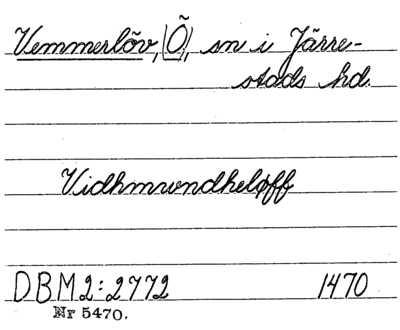 Vemmerlöv, Ö, sn i Järre-
stads hd.
Vidhmundheløff
DBM2:2772 1470
Nr 5470.